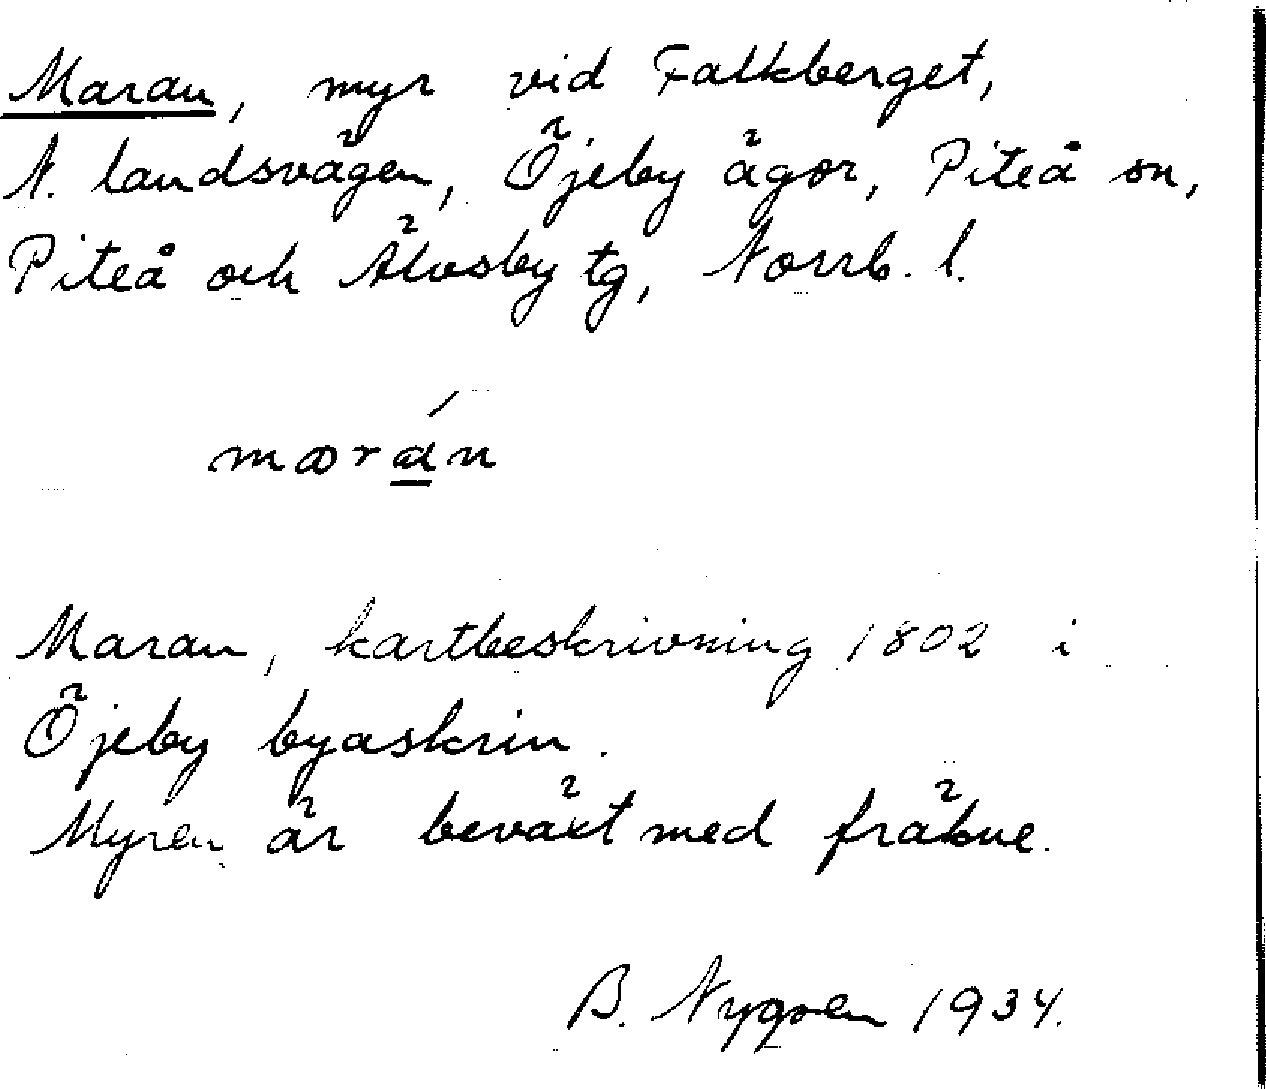 Maran, myr vid Falkberget,
N. landsvägen, Öjeby ägor, Piteå sn,
Piteå och Älvsby tg, Norrb. l.
mærán
Maran, kartbeskrivning 1802 i
Öjeby byaskrin.
Myren är beväxt med fräkne.
B. Nygren 1934.